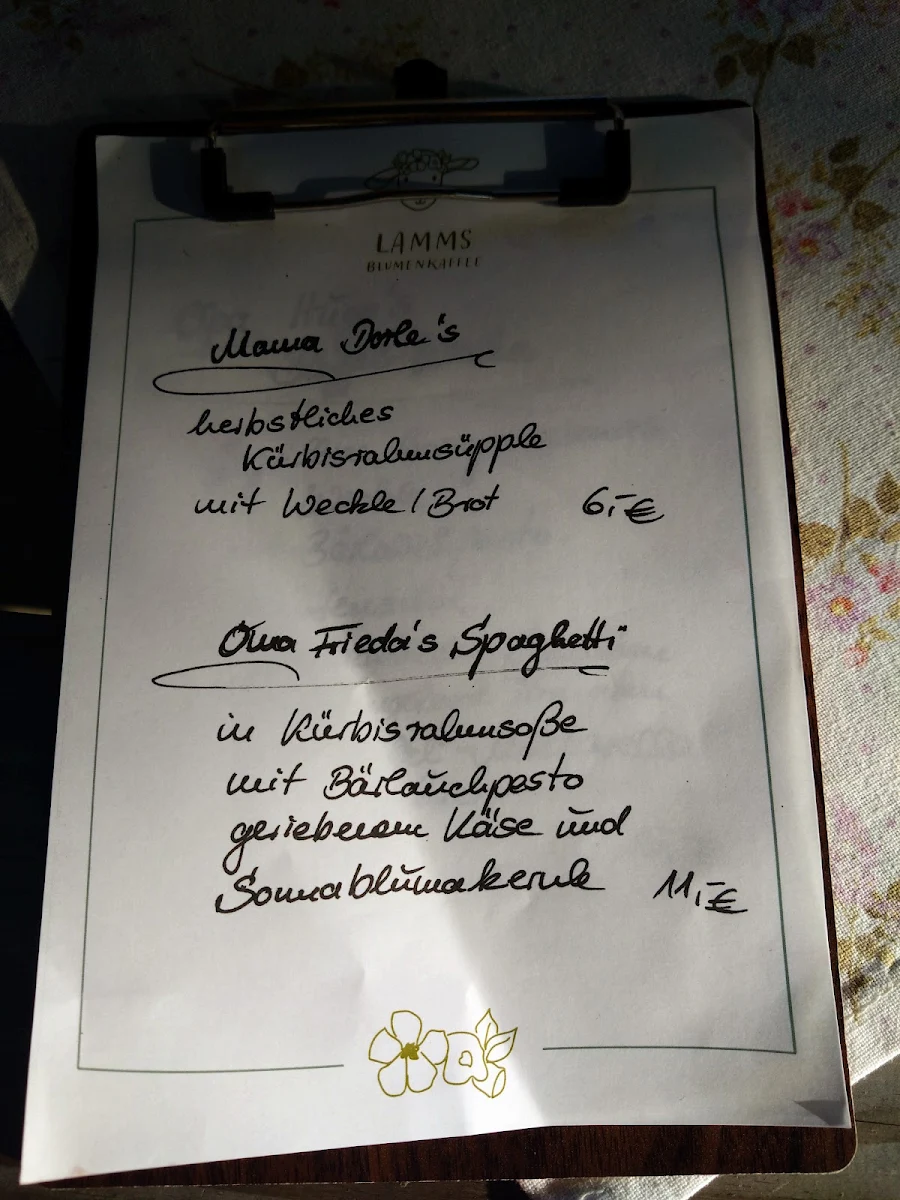 LAMMS
BLUMENKAFFEE
Mama Dorle's
herbstliches
Kürbisrahmsüpple
mit Weckle/Brot 6,-€
Oma Frieda's Spaghetti
in Kürbisrahmsoße
mit Bärlauchpesto
geriebenem Käse und
Sonnablumakernle 11,-€